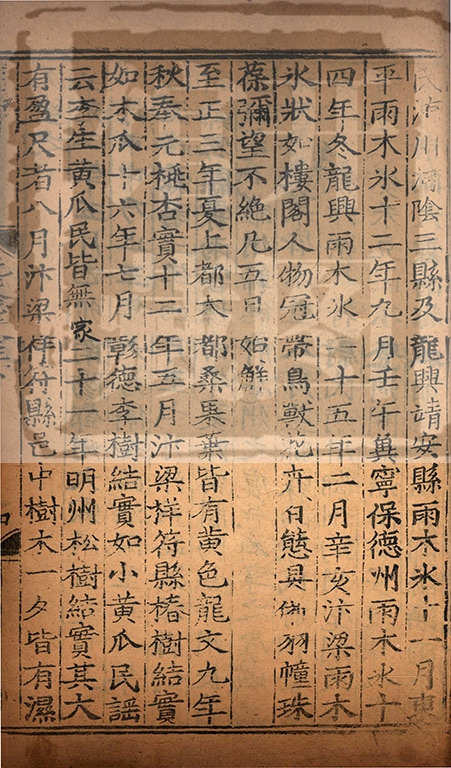 氏洧川河陰三縣及龍興靖安縣雨木氷十一月東
平雨木氷十二年九月壬午冀寧保德州雨木氷十
四年冬龍興雨木氷一十五年二月辛亥汴梁雨木
氷狀如樓閣人物冠帶鳥獸花卉百態具備羽幢珠
葆彌望不絶凡五日始解
至正三年夏上都大都桑果葉皆有黃色龍文九年
秋奉元桃杏實十二年五月汴梁祥符縣椿樹結實
如木瓜十六年七月彰德李樹結實如小黃瓜民謡
云李生黃瓜民皆無家二十一年明州松樹結實其大
有盈尺者八月汴梁祥符縣邑中樹木一夕皆有濕